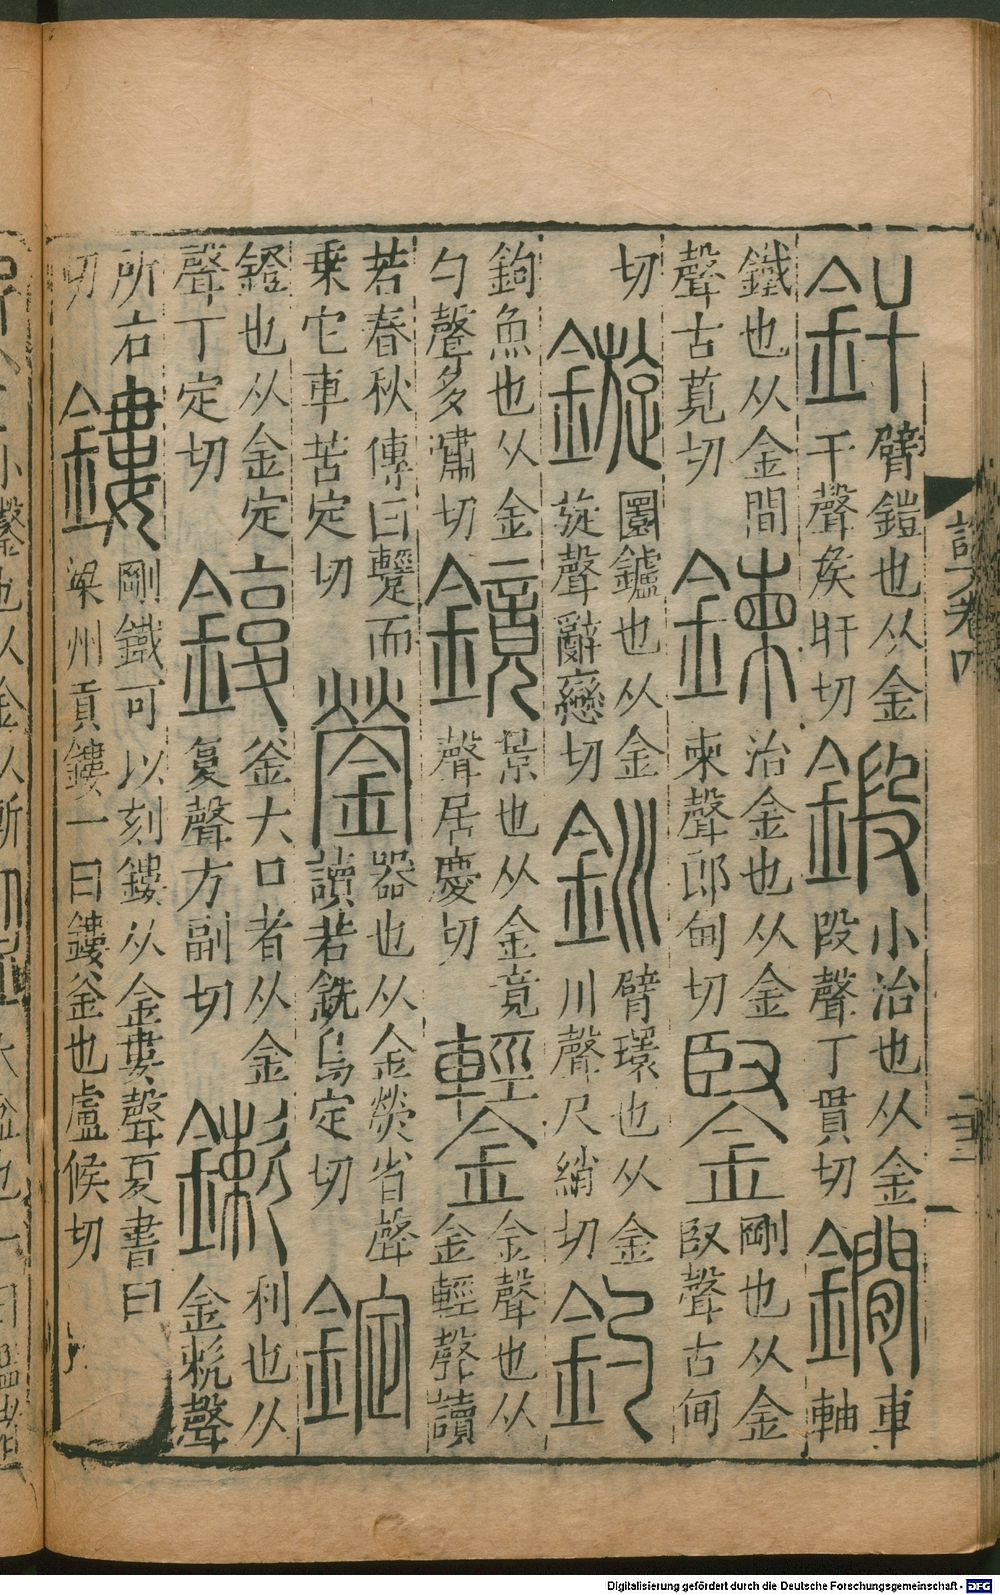 釬臂鎧也从金干聲矦旰切鍛小治也从金段聲丁貫切鐧車軸
鐵也从金閒聲古莧切鍊治金也从金柬聲郎甸切鋻剛也从金臤聲古甸
切鏇圜鑪也从金旋聲辭戀切釧臂環也从金川聲尺絹切釣
鉤魚也从金勺聲多嘯切鏡景也从金竟聲居慶切鑋金聲也从金輕聲讀
若春秋傳曰躗而乗它車苦定切鎣器也从金熒省聲讀若銑烏定切錠
鐙也从金定聲丁定切鍑釡大口者从金复聲方副切鏉利也从金欶聲
所右切鏤剛鐵可以刻鏤从金婁聲夏書曰梁州貢鏤一曰鏤釡也盧候切
說文卷四
Digitalisierung gefördert durch die Deutsche Forschungsgemeinschaft - DFG